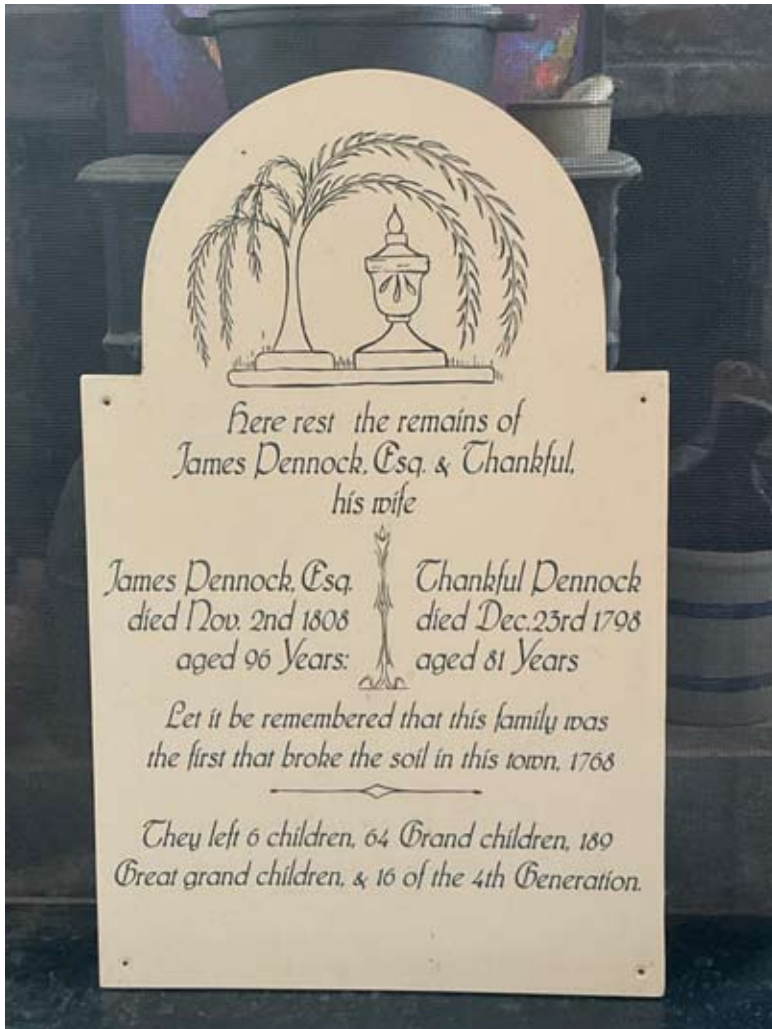 Here rest the remains of
James Pennock, Esq. & Thankful,
his wife
James Pennock, Esq.
died Nov. 2nd 1808
aged 96 Years:
Thankful Pennock
died Dec. 23rd 1798
aged 81 Years
Let it be remembered that this family was
the first that broke the soil in this town, 1768
They left 6 children, 64 Grand children, 189
Great grand children, & 16 of the 4th Generation.